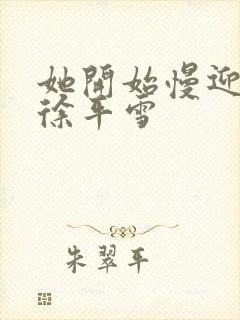 她開始慢迎
徐平雪
朱翠平